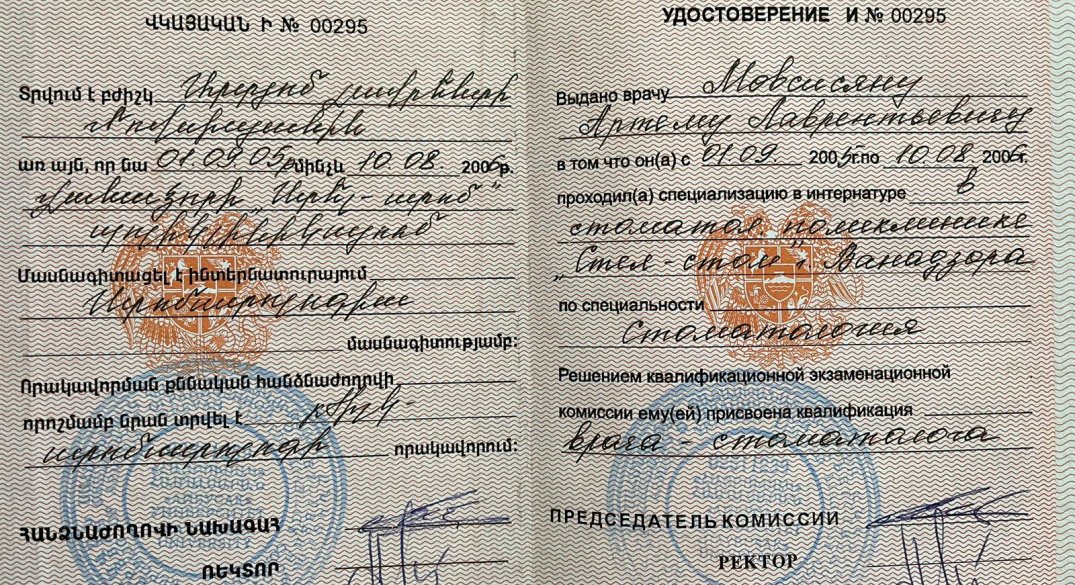 ՎԿԱՅԱԿԱՆ Ի № 00295
Տրվում է բժիշկ
Մովսիսյանին
առ այն, որ նա 01.09.05թ մինչև 10.08. 2006թ.
Վանաձորի „Ստել-ստոմ"
պոլիկլինիկայում
Մասնագիտացել է ինտերնատուրայում
մասնագիտությամբ:
Որակավորման քննական հանձնաժողովի
որոշմամբ նրան տրվել է բժիշկ-
որակավորում:
ՀԱՆՁՆԱԺՈՂՈՎԻ ՆԱԽԱԳԱՀ
ՌԵԿՏՈՐ
УДОСТОВЕРЕНИЕ И № 00295
Выдано врачу Мовсисяну
Артему Лаврентьевичу
в том что он(а) с 01.09. 2005г. по 10.08. 2006г.
проходил(а) специализацию в интернатуре в
стоматол поликлинике
„Стел-стом" г. Ванадзора
по специальности
Стоматология
Решением квалификационной экзаменационной
комиссии ему(ей) присвоена квалификация
врача-стоматолога
ПРЕДСЕДАТЕЛЬ КОМИССИИ
РЕКТОР